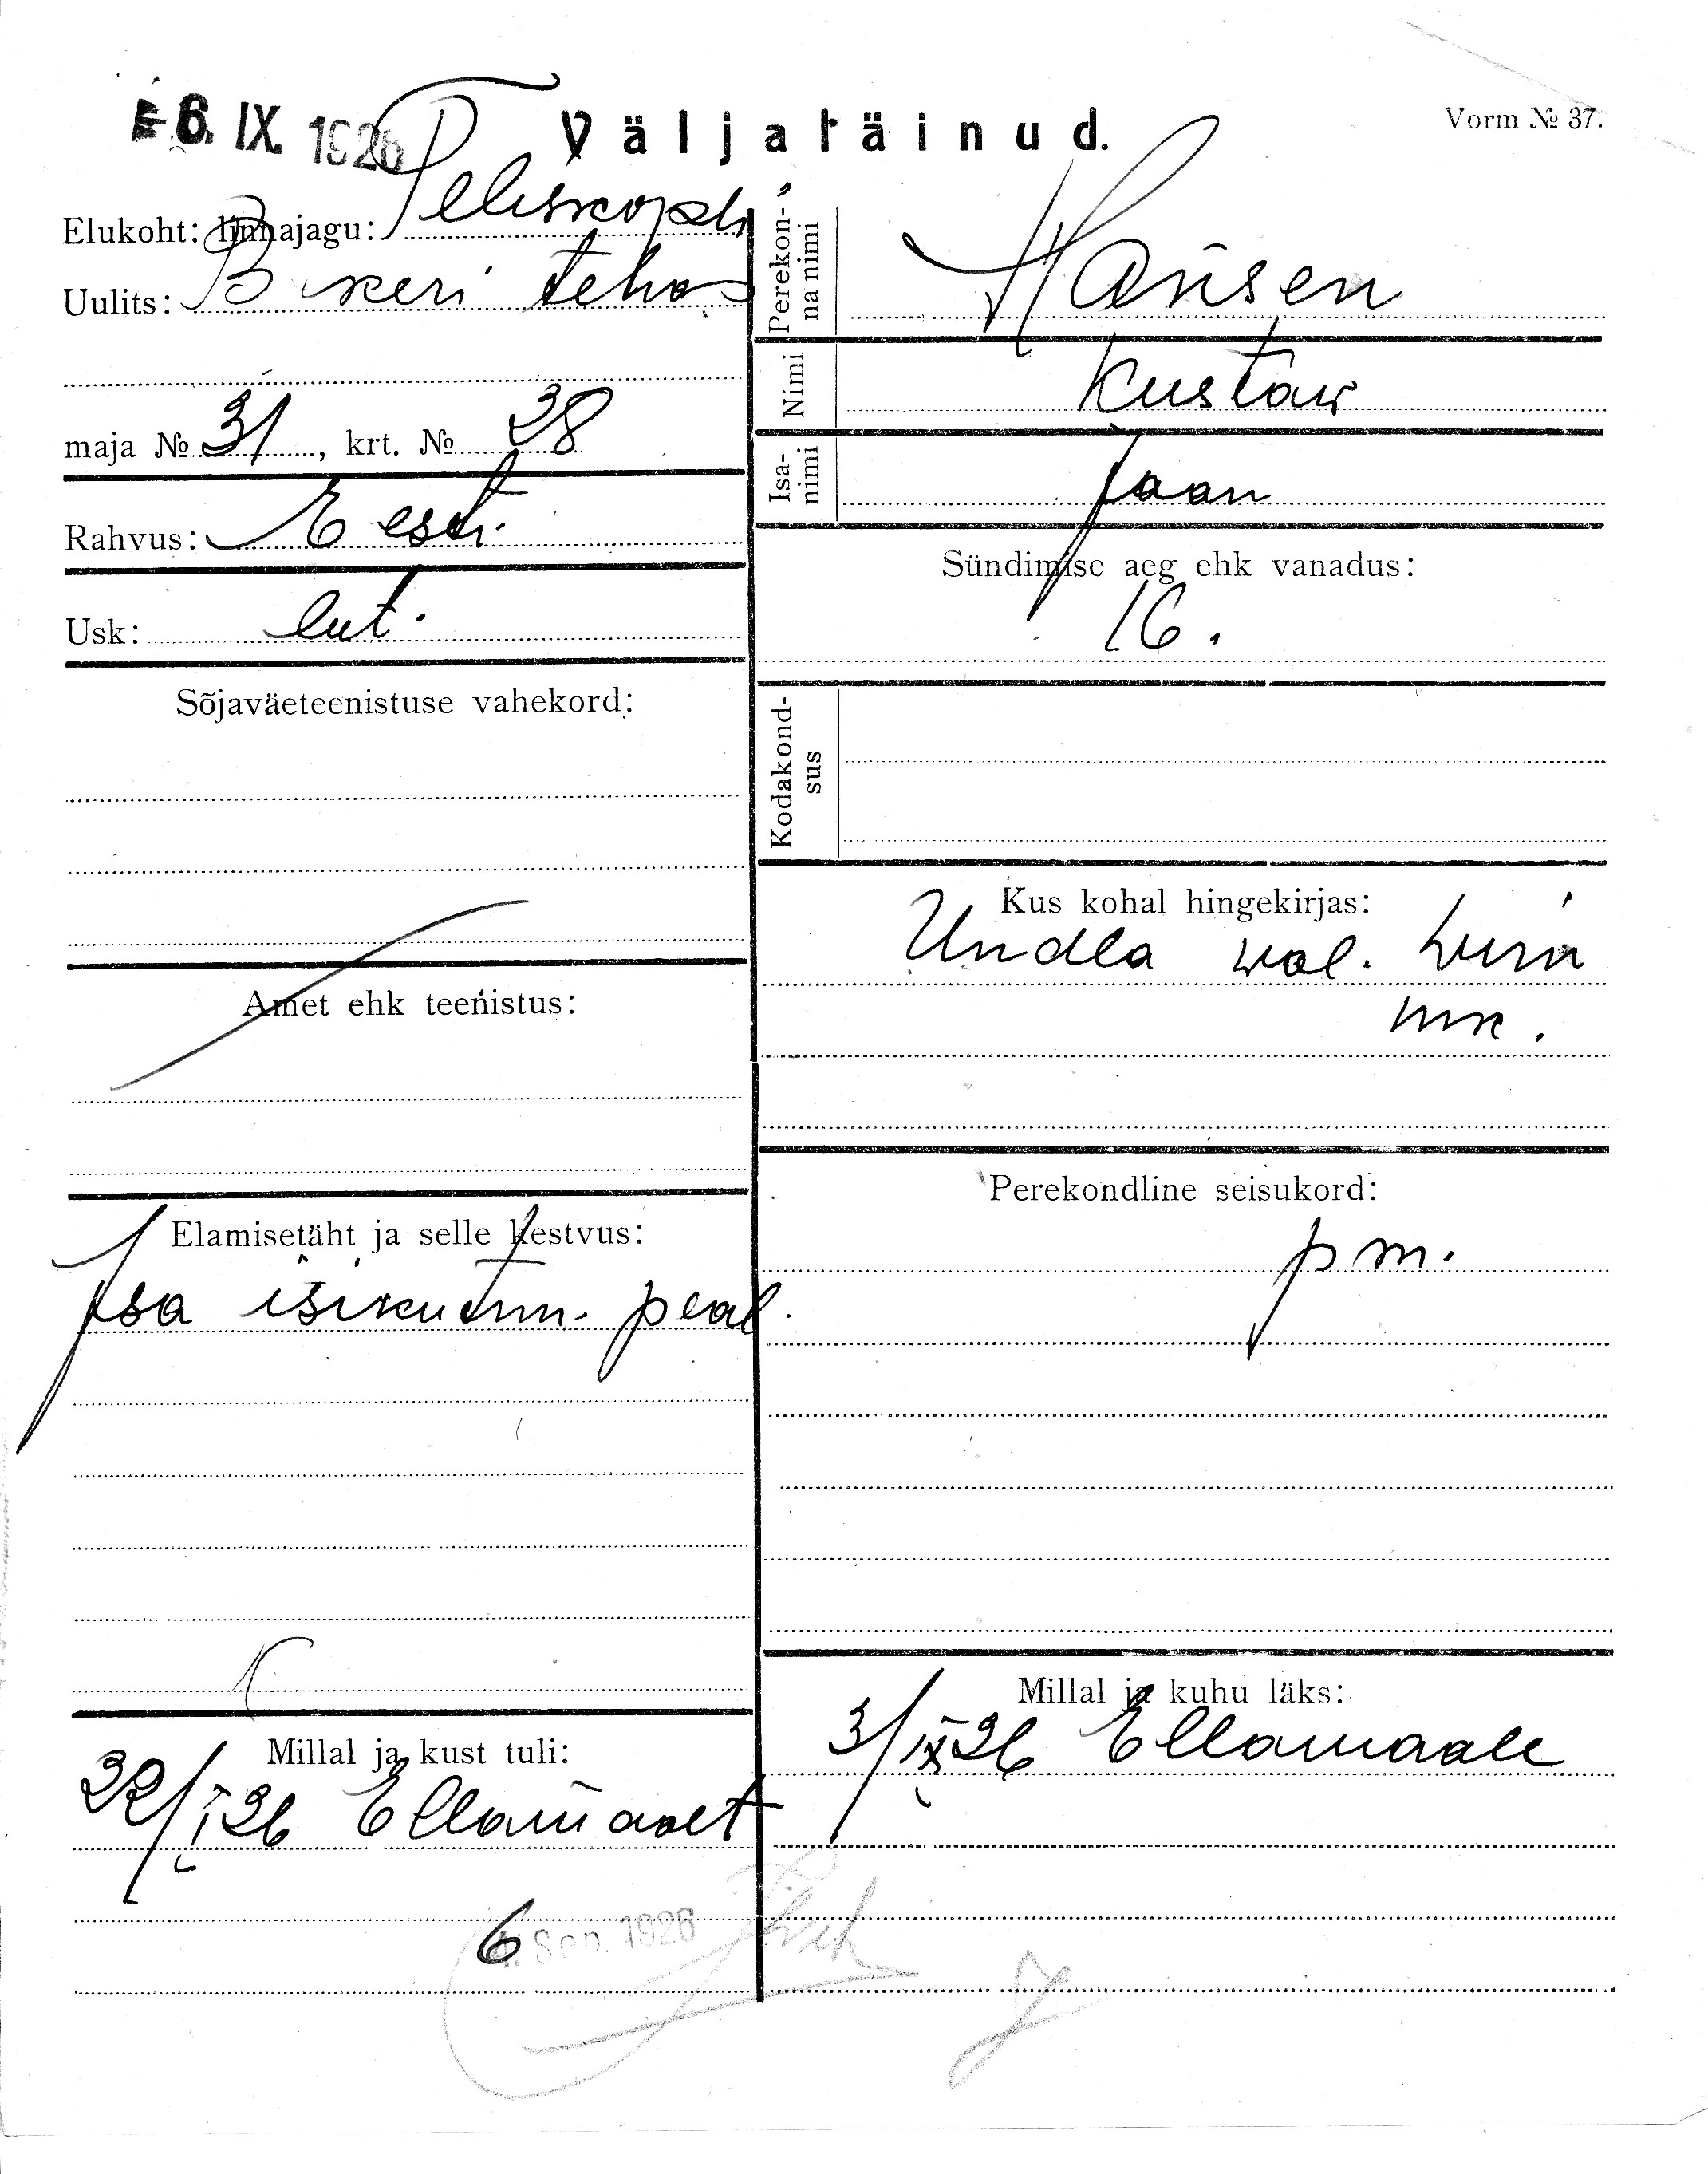 6. IX. 1926
Väljaläinud.
Vorm № 37.
Elukoht: linnajagu: Teliskopli
Uulits: Bekeri tehas
maja № 31, krt. № 38
Rahvus: Eesti
Usk: lut.
Sõjaväeteenistuse vahekord:
Amet ehk teenistus:
Elamisetäht ja selle kestvus:
Isa isikutun. peal
Millal ja kust tuli:
22/I 26 Ellamaalt
6 Sep. 1926
Perekonna nimi Hansen
Nimi Kustav
Isanimi Jaan
Sündimise aeg ehk vanadus:
16.
Kodakondsus
Kus kohal hingekirjas:
Undla wal. Wiru
mk.
Perekondline seisukord:
pm.
Millal ja kuhu läks:
3/IX 26 Ellamaale